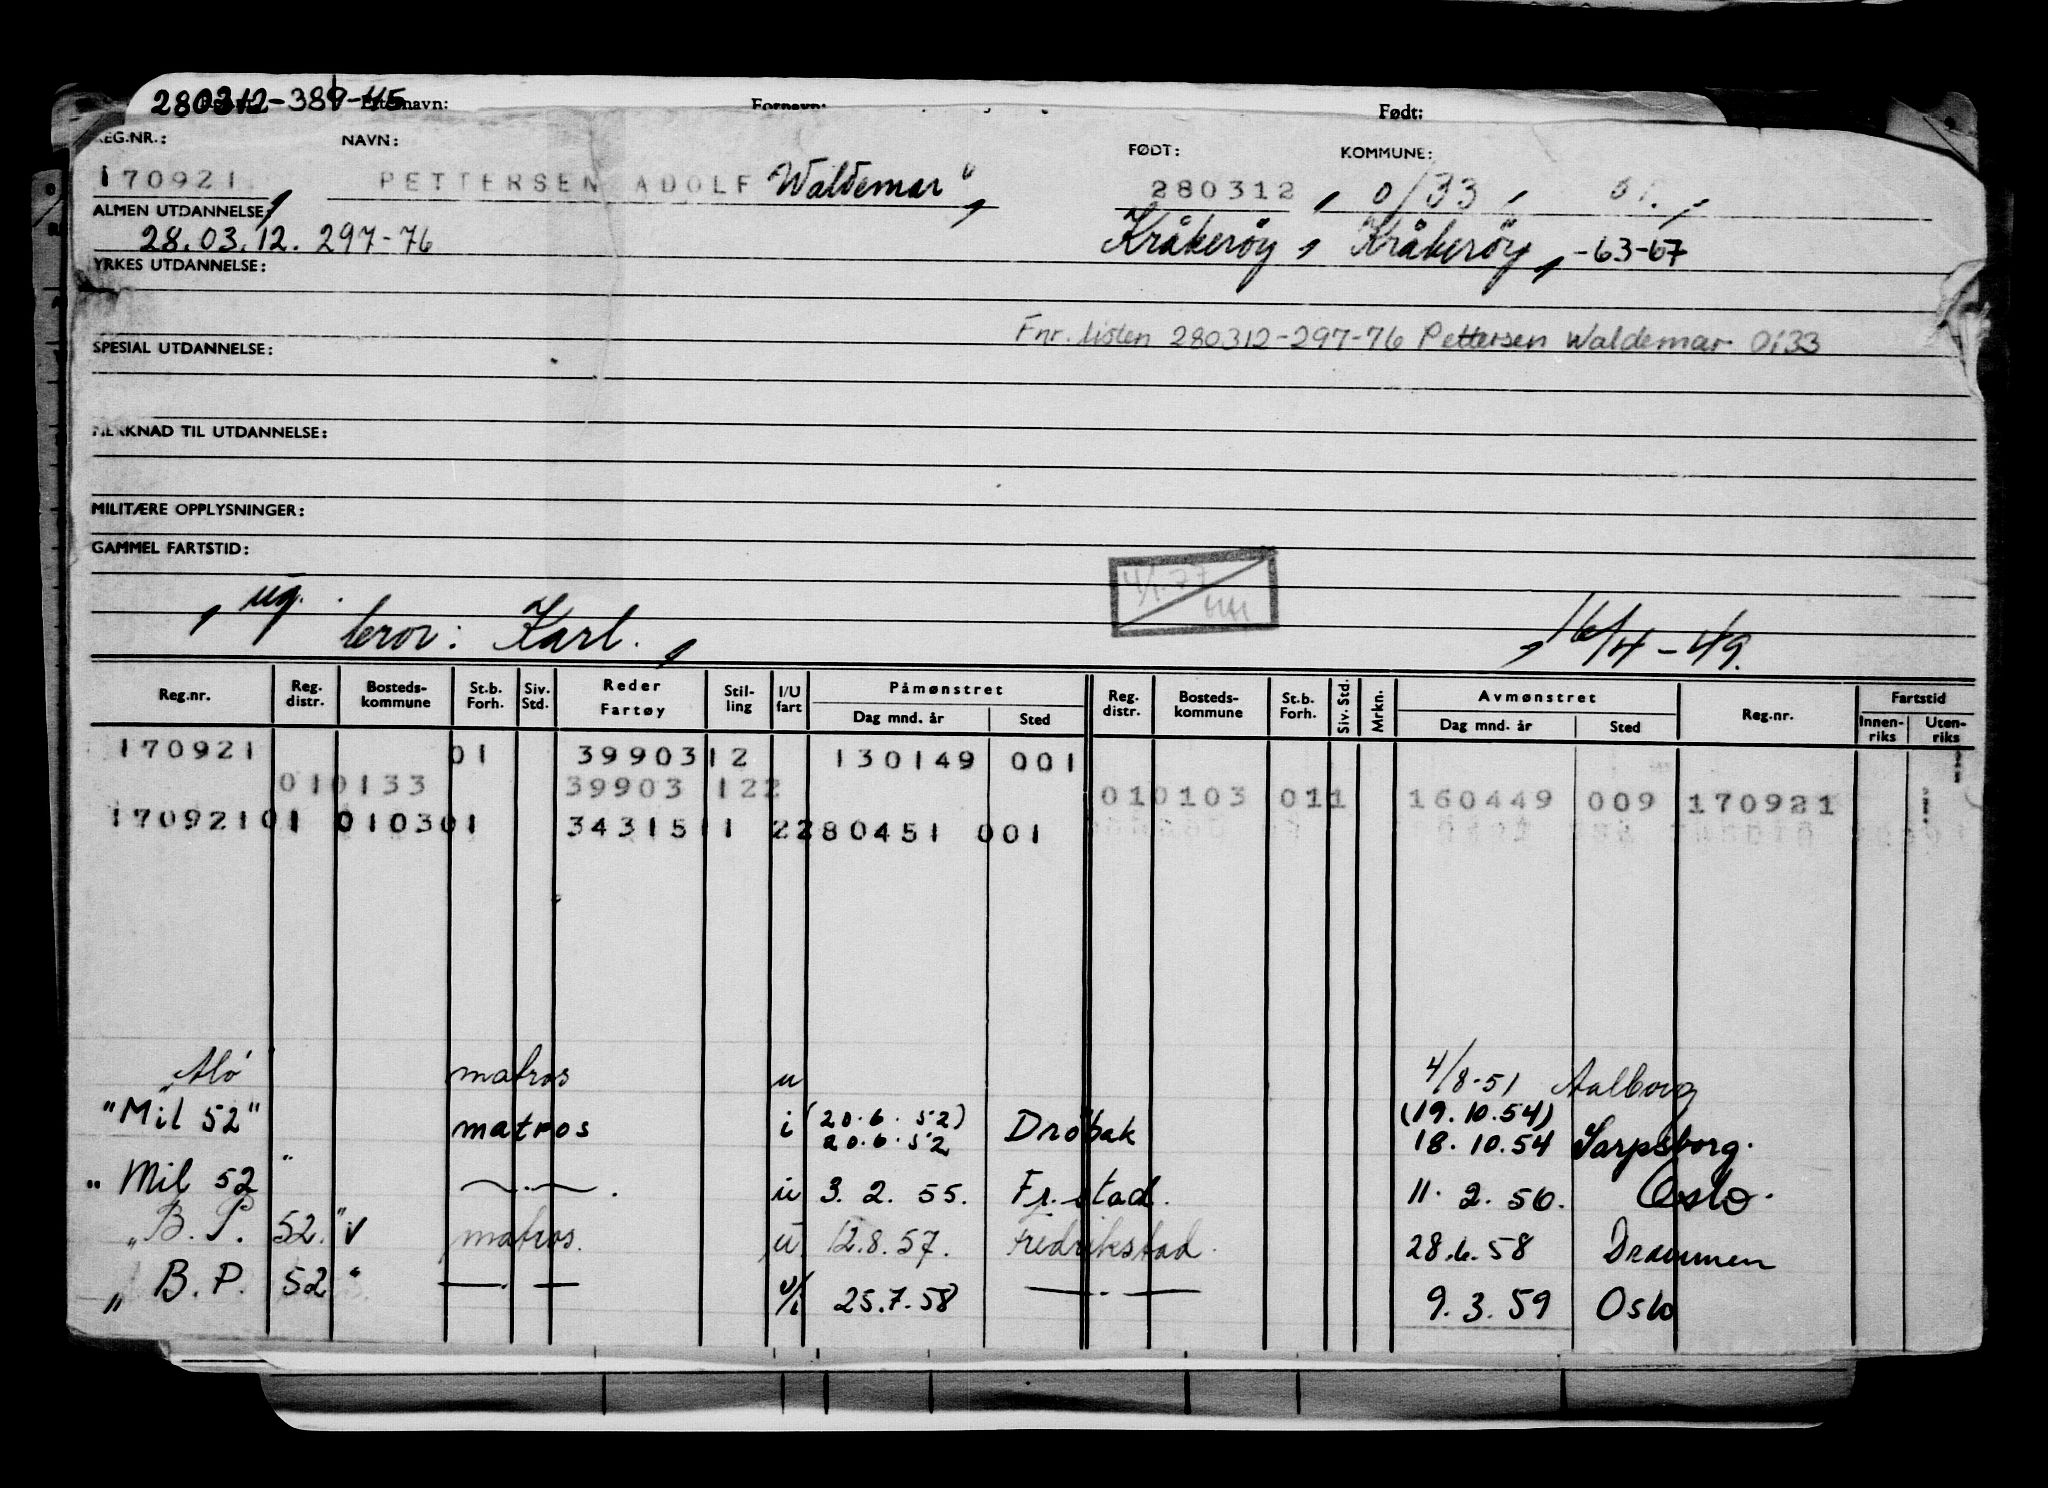 280312-389-45 Etternavn: Fornavn: Født:
REG.NR.: NAVN: FØDT: KOMMUNE:
170921 PETTERSEN ADOLF Waldemar" 280312, 0/33, 01.,
ALMEN UTDANNELSE:
28.03.12. 297-76 Kråkerøy, Kråkerøy, -63-67
YRKES UTDANNELSE:
Fnr. listen 280312-297-76 Pettersen Waldemar 0133
SPESIAL UTDANNELSE:
MERKNAD TIL UTDANNELSE:
MILITÆRE OPPLYSNINGER:
GAMMEL FARTSTID:
, ug.
beror: Karl. , , 16/4-49.
Reg.nr. Reg. distr. Bosteds-kommune St.b. Forh. Siv. Std. Reder Fartøy Stil-ling I/U fart Påmønstret Dag mnd. år Sted Reg. distr. Bosteds-kommune St.b. Forh. Siv. Std. Mrkn. Avmønstret Dag mnd. år Sted Reg.nr. Fartstid Innen-riks Uten-riks
170921 01 3990312 130149 001
010133 39903 122 010103 011 160449 009 170921
17092101 010301 3431511 2280451 001
matros u 4/8-51 Aalborg
"Mil 52" matros i (20.6.52) 20.6.52 Drøbak (19.10.54) 18.10.54 Sarpsborg.
"Mil 52" —.—. u 3.2.55. Fr.stad. 11.2.56. Oslo.
"B.P. 52." v matros. u 12.8.57. Fredrikstad. 28.6.58 Drammen
"B.P. 52" —.— u/i 25.7.58 —.— 9.3.59 Oslo